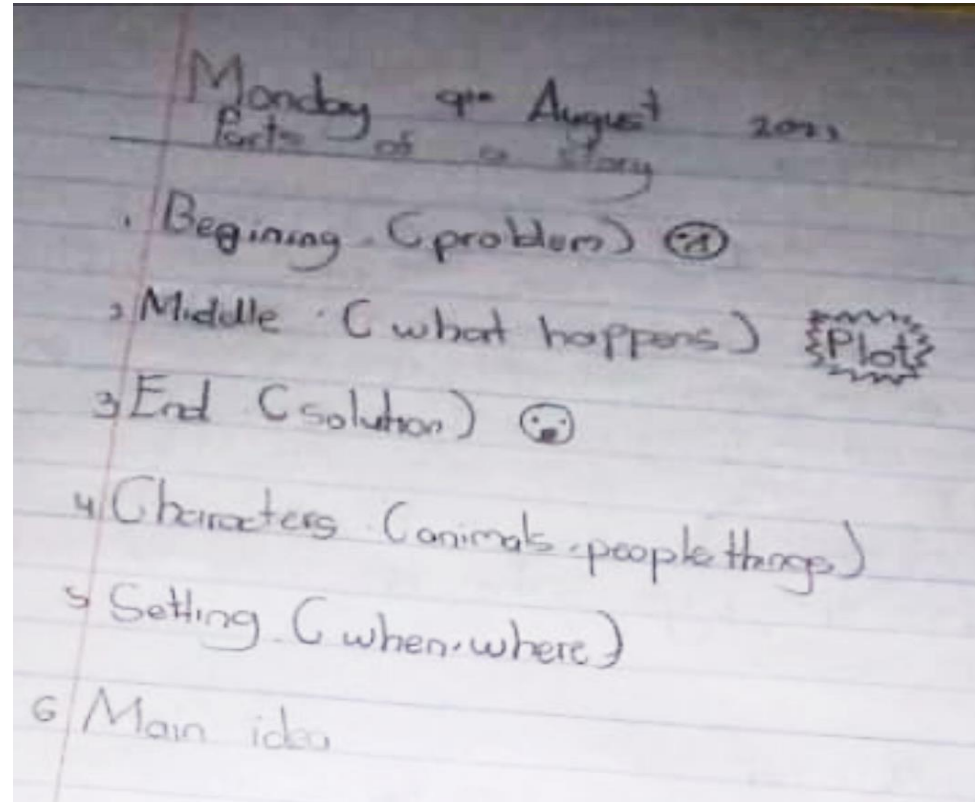 Monday 9th August 2021
Parts of a story
1. Begining. (problem)
2 Middle. (what happens) Plot
3 End (solution)
4 Characters. (animals.people things)
5 Setting. (when.where)
6 Main idea